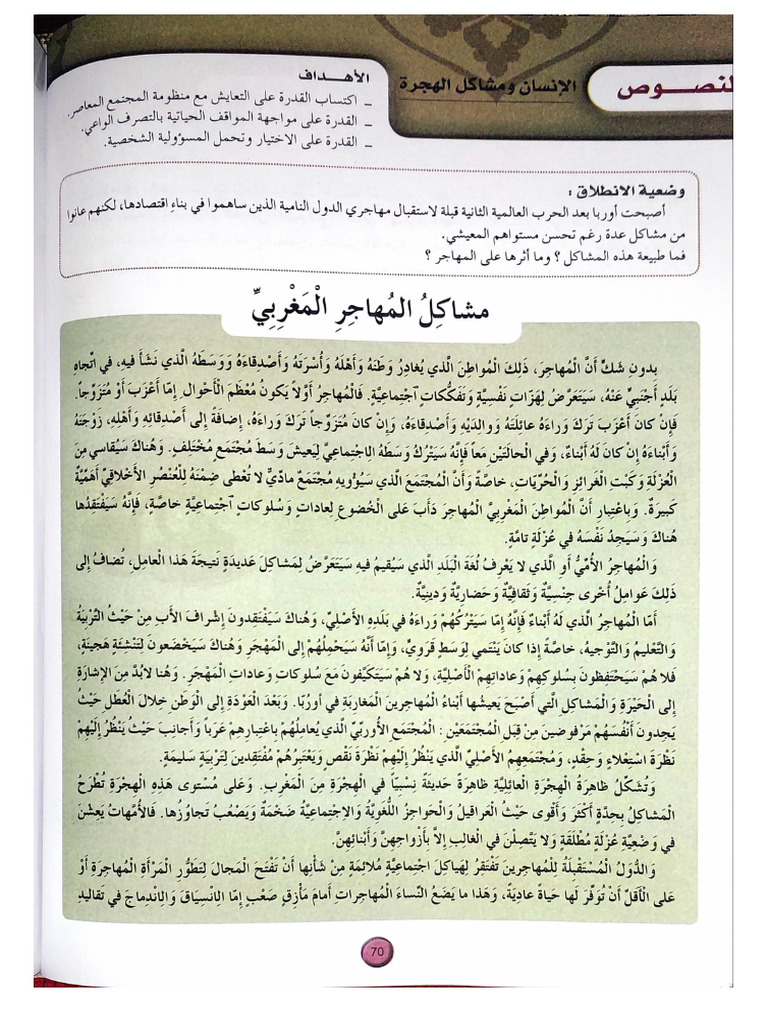 لنصوص
الإنسان ومشاكل الهجرة
الأهداف
_ اكتساب القدرة على التعايش مع منظومة المجتمع المعاصر.
_ القدرة على مواجهة المواقف الحياتية بالتصرف الواعي.
_ القدرة على الاختيار وتحمل المسؤولية الشخصية.
وضعية الانطلاق :
أصبحت أوربا بعد الحرب العالمية الثانية قبلة لاستقبال مهاجري الدول النامية الذين ساهموا في بناء اقتصادها، لكنهم عانوا
من مشاكل عدة رغم تحسن مستواهم المعيشي.
فما طبيعة هذه المشاكل ؟ وما أثرها على المهاجر ؟
مشاكِلُ المُهاجِرِ الْمَغْرِبِيِّ
بِدونِ شَكٍّ أَنَّ الْمُهاجِرَ، ذَلِكَ الْمُواطِنَ الَّذي يُغادِرُ وَطَنَهُ وَأَهْلَهُ وَأُسْرَتَهُ وَأَصْدِقاءَهُ وَوَسَطَهُ الَّذي نَشَأَ فيهِ، في اتِّجاهِ
بَلَدٍ أَجْنَبِيٍّ عَنْهُ، سَيَتَعَرَّضُ لِهَزّاتٍ نَفْسِيَّةٍ وَتَفَكُّكاتٍ اجْتِماعِيَّةٍ. فَالْمُهاجِرُ أَوَّلاً يَكونُ مُعْظَمَ الْأَحْوالِ إِمّا أَعْزَبَ أَوْ مُتَزَوِّجاً.
فَإِنْ كانَ أَعْزَبَ تَرَكَ وَراءَهُ عائِلَتَهُ وَوالِدَيْهِ وَأَصْدِقاءَهُ، وَإِنْ كانَ مُتَزَوِّجاً تَرَكَ وَراءَهُ، إِضافَةً إِلى أَصْدِقائِهِ وَأَهْلِهِ، زَوْجَتَهُ
وَأَبْناءَهُ إِنْ كانَ لَهُ أَبْناءٌ، وَفي الْحالَتَيْنِ مَعاً فَإِنَّهُ سَيَتْرُكُ وَسَطَهُ الِاجْتِماعِيَّ لِيَعيشَ وَسَطَ مُجْتَمَعٍ مُخْتَلِفٍ. وَهُناكَ سَيُقاسي مِنَ
الْعُزْلَةِ وَكَبْتِ الْغَرائِزِ وَالْحُرِّيّاتِ، خاصَّةً وَأَنَّ الْمُجْتَمَعَ الَّذي سَيُؤْويهِ مُجْتَمَعٌ مادِّيٌّ لا تُعْطى ضِمْنَهُ لِلْعُنْصُرِ الْأَخْلاقِيِّ أَهَمِّيَّةٌ
كَبيرَةٌ. وَبِاعْتِبارِ أَنَّ الْمُواطِنَ الْمَغْرِبِيَّ الْمُهاجِرَ دَأَبَ عَلى الْخُضوعِ لِعاداتٍ وَسُلوكاتٍ اجْتِماعِيَّةٍ خاصَّةٍ، فَإِنَّهُ سَيَفْتَقِدُها
هُناكَ وَسَيَجِدُ نَفْسَهُ في عُزْلَةٍ تامَّةٍ.
وَالْمُهاجِرُ الْأُمِّيُّ أَوِ الَّذي لا يَعْرِفُ لُغَةَ الْبَلَدِ الَّذي سَيُقيمُ فيهِ سَيَتَعَرَّضُ لِمَشاكِلَ عَديدَةٍ نَتيجَةَ هَذا الْعامِلِ، تُضافُ إِلى
ذَلِكَ عَوامِلُ أُخْرى جِنْسِيَّةٌ وَثَقافِيَّةٌ وَحَضارِيَّةٌ وَدينِيَّةٌ.
أَمّا الْمُهاجِرُ الَّذي لَهُ أَبْناءٌ فَإِنَّهُ إِمّا سَيَتْرُكُهُمْ وَراءَهُ في بَلَدِهِ الْأَصْلِيِّ، وَهُناكَ سَيَفْتَقِدونَ إِشْرافَ الْأَبِ مِنْ حَيْثُ التَّرْبِيَةُ
وَالتَّعْليمُ وَالتَّوْجيهُ، خاصَّةً إِذا كانَ يَنْتَمي لِوَسَطٍ قَرَوِيٍّ، وَإِمّا أَنَّهُ سَيَحْمِلُهُمْ إِلى الْمَهْجَرِ وَهُناكَ سَيَخْضَعونَ لِتَنْشِئَةٍ هَجينَةٍ،
فَلا هُمْ سَيَحْتَفِظونَ بِسُلوكِهِمْ وَعاداتِهِمُ الْأَصْلِيَّةِ، وَلا هُمْ سَيَتَكَيَّفونَ مَعَ سُلوكاتِ وَعاداتِ الْمَهْجَرِ. وَهُنا لابُدَّ مِنَ الْإِشارَةِ
إِلى الْحَيْرَةِ وَالْمَشاكِلِ الَّتي أَصْبَحَ يَعيشُها أَبْناءُ الْمُهاجِرينَ الْمَغارِبَةِ في أوربّا. وَبَعْدَ الْعَوْدَةِ إِلى الْوَطَنِ خِلالَ الْعُطَلِ حَيْثُ
يَجِدونَ أَنْفُسَهُمْ مَرْفوضينَ مِنْ قِبَلِ الْمُجْتَمَعَيْنِ : الْمُجْتَمَعِ الْأُورُبِّيِّ الَّذي يُعامِلُهُمْ بِاعْتِبارِهِمْ عَرَباً وَأَجانِبَ حَيْثُ يَنْظُرُ إِلَيْهِمْ
نَظْرَةَ اسْتِعْلاءٍ وَحِقْدٍ، وَمُجْتَمَعِهِمُ الْأَصْلِيِّ الَّذي يَنْظُرُ إِلَيْهِمْ نَظْرَةَ نَقْصٍ وَيَعْتَبِرُهُمْ مُفْتَقِدينَ لِتَرْبِيَةٍ سَليمَةٍ.
وَتُشَكِّلُ ظاهِرَةُ الْهِجْرَةِ الْعائِلِيَّةِ ظاهِرَةً حَديثَةً نِسْبِيّاً في الْهِجْرَةِ مِنَ الْمَغْرِبِ. وَعَلى مُسْتَوى هَذِهِ الْهِجْرَةِ تُطْرَحُ
الْمَشاكِلُ بِحِدَّةٍ أَكْثَرَ وَأَقْوى حَيْثُ الْعَراقيلُ وَالْحَواجِزُ اللُّغَوِيَّةُ وَالِاجْتِماعِيَّةُ ضَخْمَةٌ وَيَصْعُبُ تَجاوُزُها. فَالْأُمَّهاتُ يَعِشْنَ
في وَضْعِيَّةِ عُزْلَةٍ مُطْلَقَةٍ وَلا يَتَّصِلْنَ في الْغالِبِ إِلاَّ بِأَزْواجِهِنَّ وَأَبْنائِهِنَّ.
وَالدُّوَلُ الْمُسْتَقْبِلَةُ لِلْمُهاجِرينَ تَفْتَقِرُ لِهَياكِلَ اجْتِماعِيَّةٍ مُلائِمَةٍ مِنْ شَأْنِها أَنْ تَفْتَحَ الْمَجالَ لِتَطَوُّرِ الْمَرْأَةِ الْمُهاجِرَةِ أَوْ
عَلى الْأَقَلِّ أَنْ تُوَفِّرَ لَها حَياةً عادِيَةً، وَهَذا ما يَضَعُ النِّساءَ الْمُهاجِراتِ أَمامَ مَأْزِقٍ صَعْبٍ إِمّا الِانْسِياقِ وَالِانْدِماجِ في تَقاليدِ
70